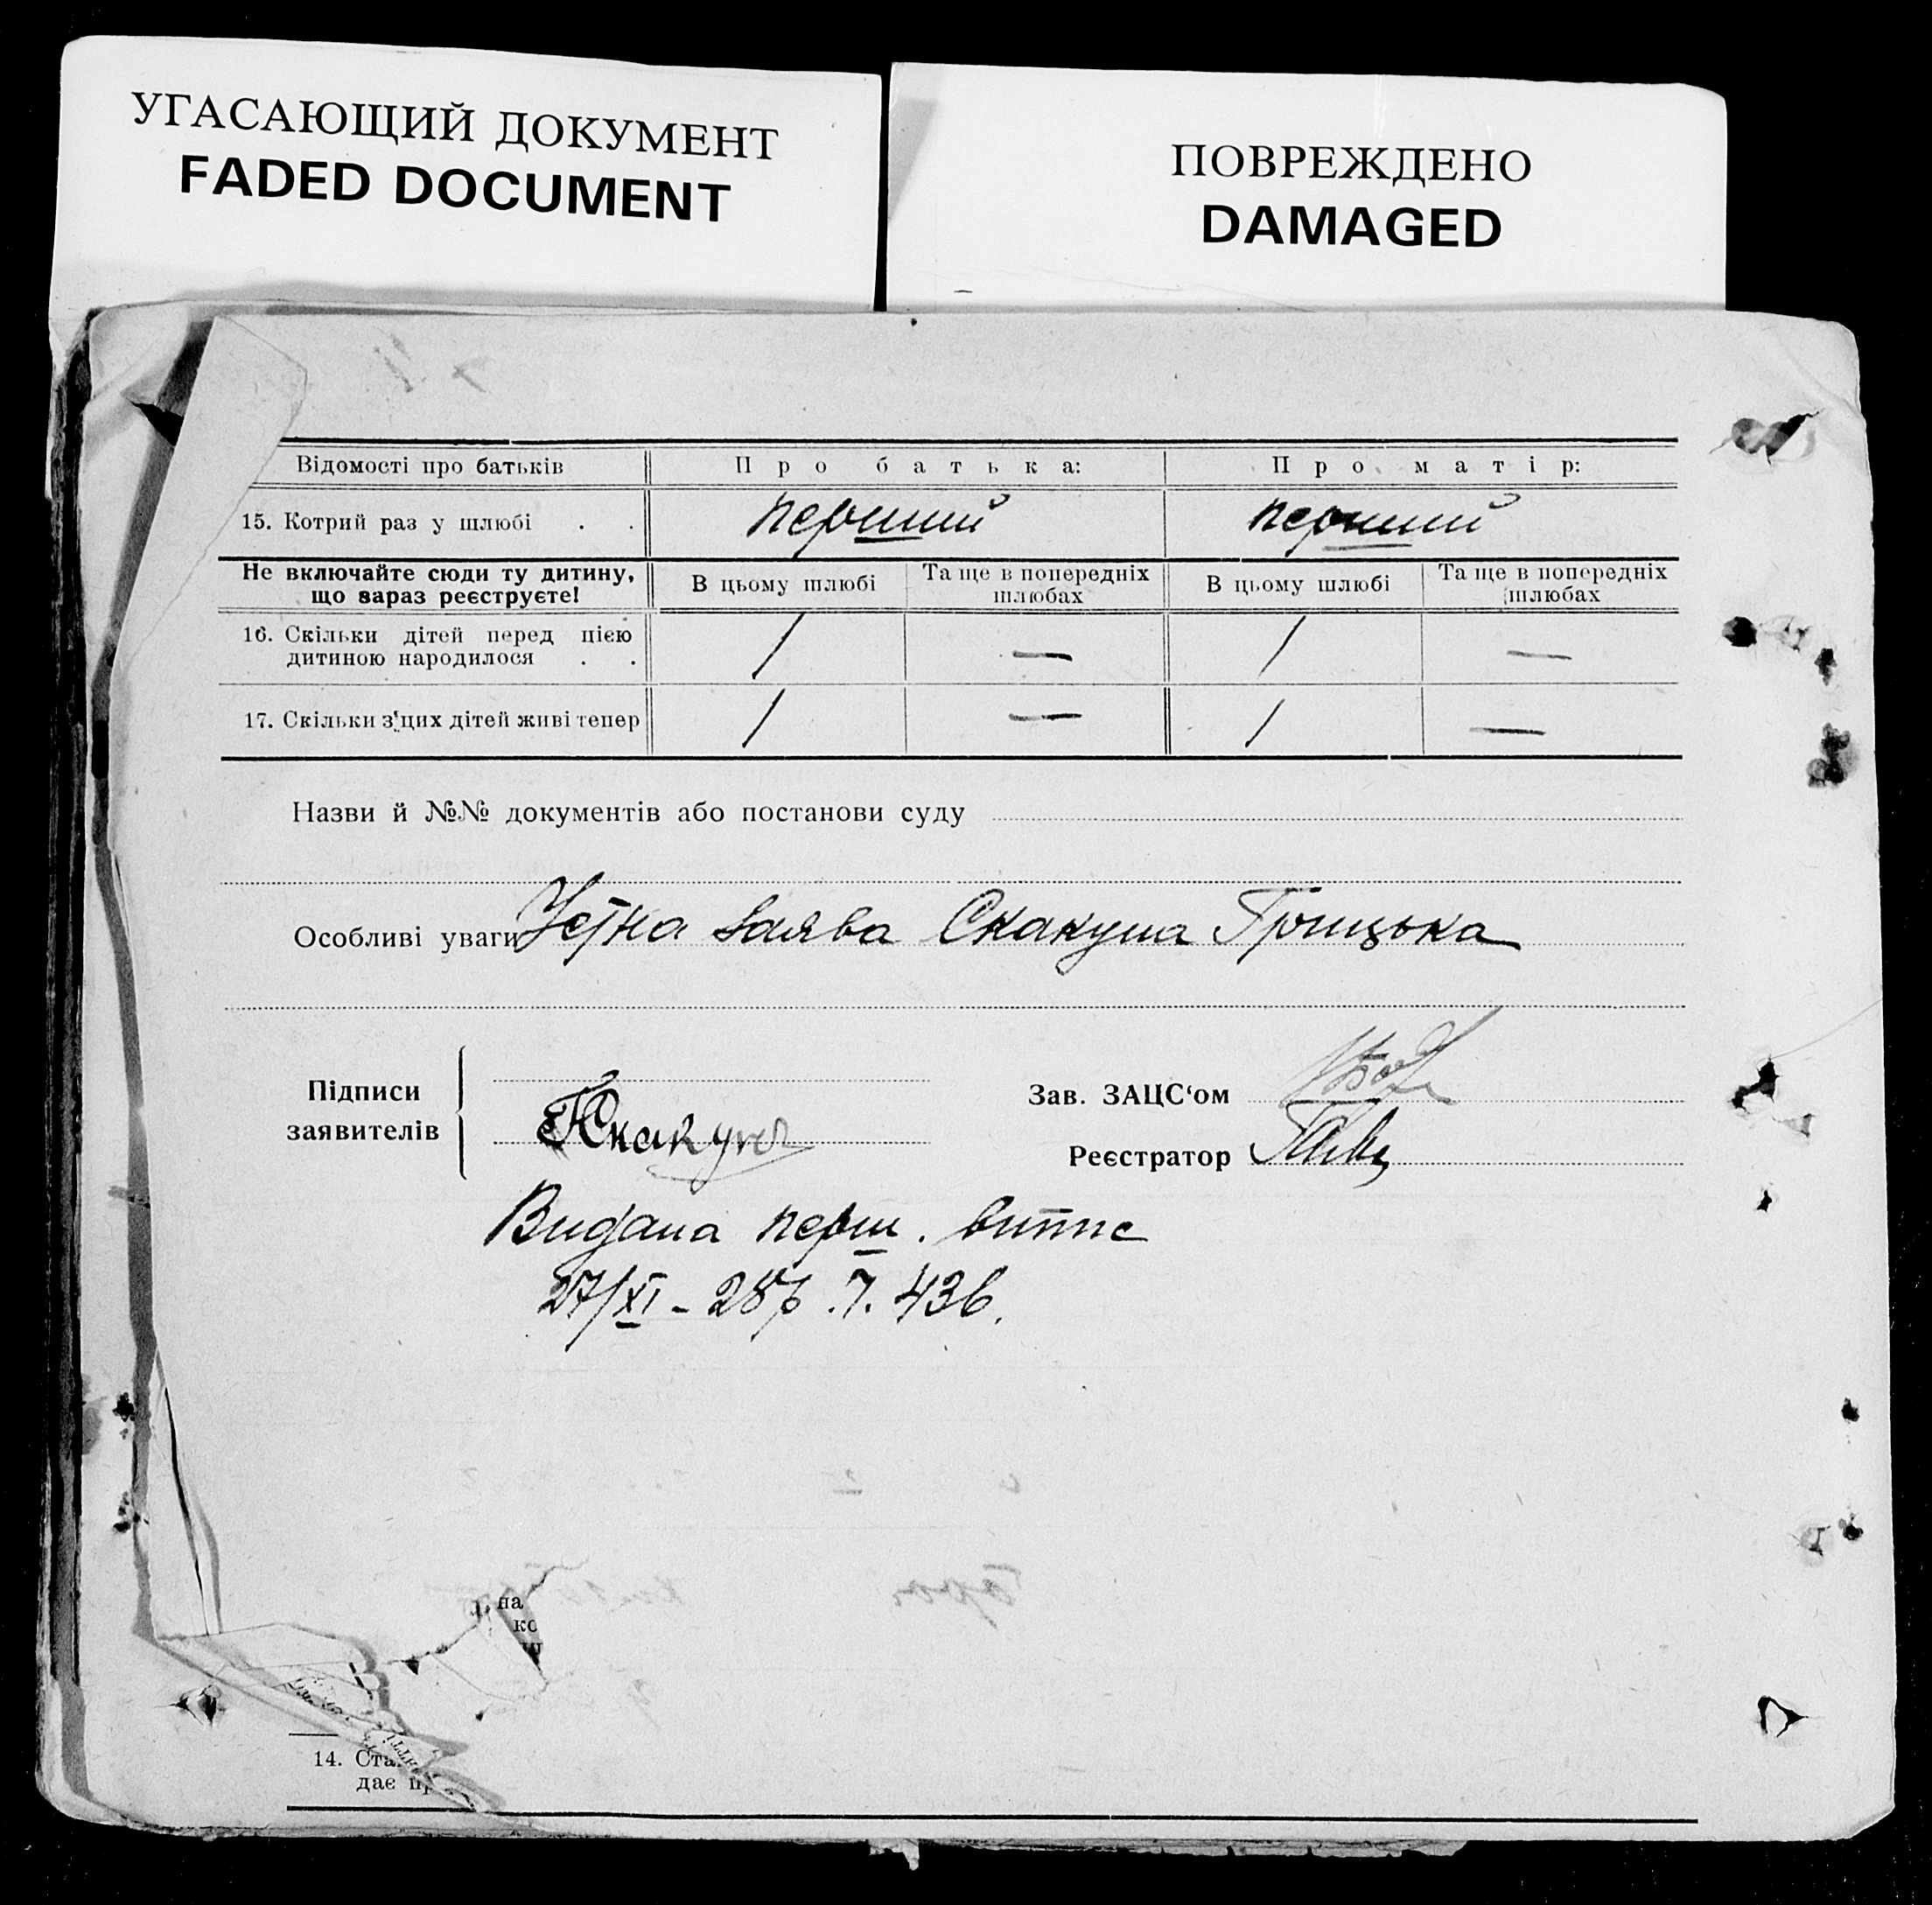 УГАСАЮЩИЙ ДОКУМЕНТ
FADED DOCUMENT
ПОВРЕЖДЕНО
DAMAGED
Відомості про батьків Про батька: Про матір:
15. Котрий раз у шлюбі . . перший перший
Не включайте сюди ту дитину, що зараз реєструєте! В цьому шлюбі Та ще в попередніх шлюбах В цьому шлюбі Та ще в попередніх шлюбах
16. Скільки дітей перед цією
дитиною народилося . . / — / —
17. Скільки з'цих дітей живі тепер / — / —
Назви й №№ документів або постанови суду
Особливі уваги Устна заява Скакуна Грицька
Підписи
заявителів
Скакун
Зав. ЗАЦС'ом
Реєстратор
Видана перш. випис
27/XI - 28р. 7. 436.
на
ко
14. Ста
дає пр